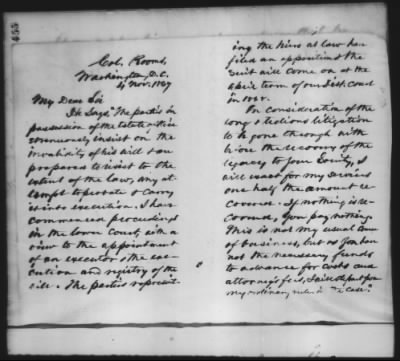 455
Col. Rooms,
Washington, D.C.
4 Nov. 1867
My Dear Sir
He Says, "The parties in
possession of the estate active
strenuously insist on the
invalidity of his will & are
prepared to resist to the
extent of the law, any at-
tempt to probate & carry
it into execution. I have
commenced proceedings
in the lower Court, with a
view to the appointment
of an executor & the exe-
cution and registry of the
will. The parties represent-
ing the heirs at law have
filed an opposition & the
Suit will come on at the
term of our Dist. Court
in
In consideration of the
long & tedious litigation
to be gone through with
before the recovery of the
legacy to your Society, I
will exact for my services
one half the amount re-
covered. If nothing is re-
covered, you pay nothing.
This is not my usual
of business, but as you have
not the necessary funds
to advance for costs and
attorney's fees, I will depart from
my ordinary rule in case."